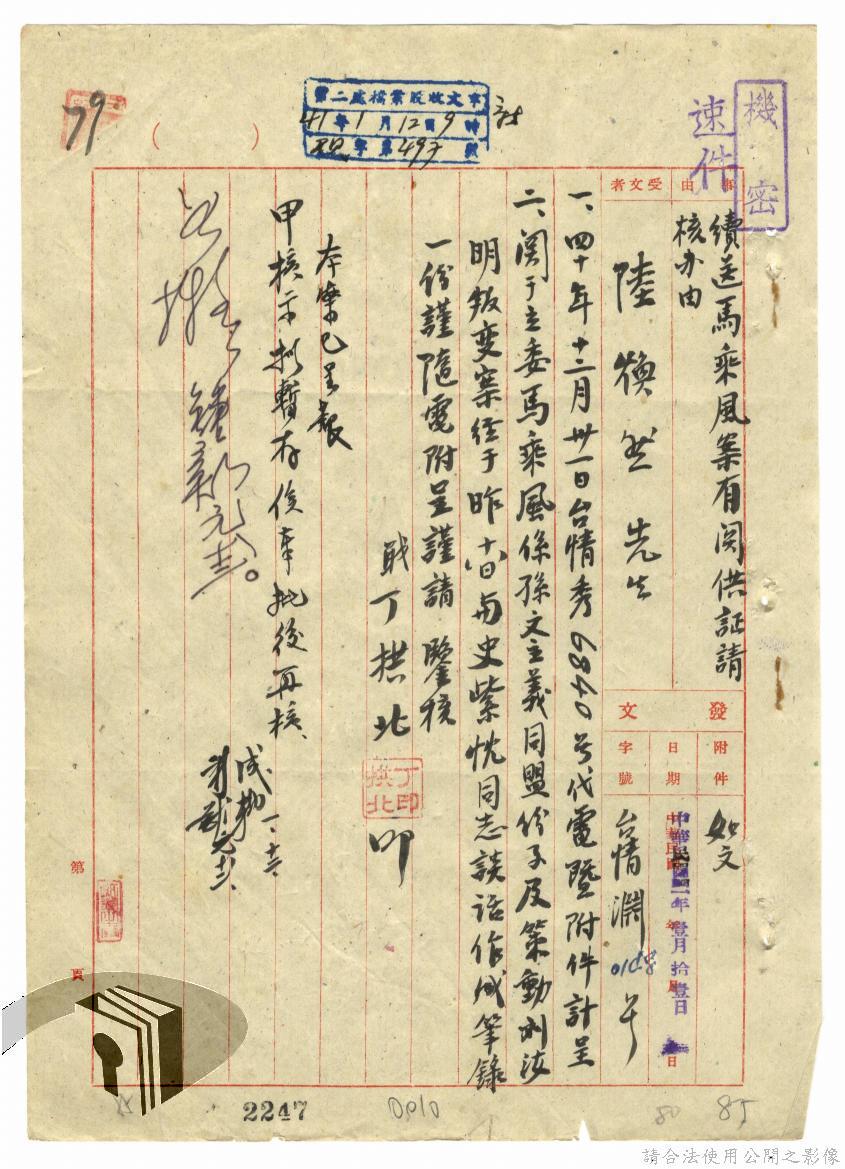 機密
速件
事由
續送馬乘風案有関供証請
核办由
受文者
陸煥然先生
發文
附件
如文
日期
中華民國四一年壹月拾壹日
字號
台情淵
0158
号
一、四十年十二月卅一日台情秀6840号代電暨附件計呈
二、関于立委馬乘風係孫文主義同盟份子及策動刘汝
明叛变案經于昨十日与史紫忱同志談話作成筆錄
一份謹隨電附呈謹請 鑒核
职丁拱北
丁拱北印
叩
本案已呈報
甲核示拟暫存俟奉批後再核、
一、十二
第二處檔案股收文章
41年1月12日9時
字第497號
79
第
頁
2247
80
85
請合法使用公開之影像